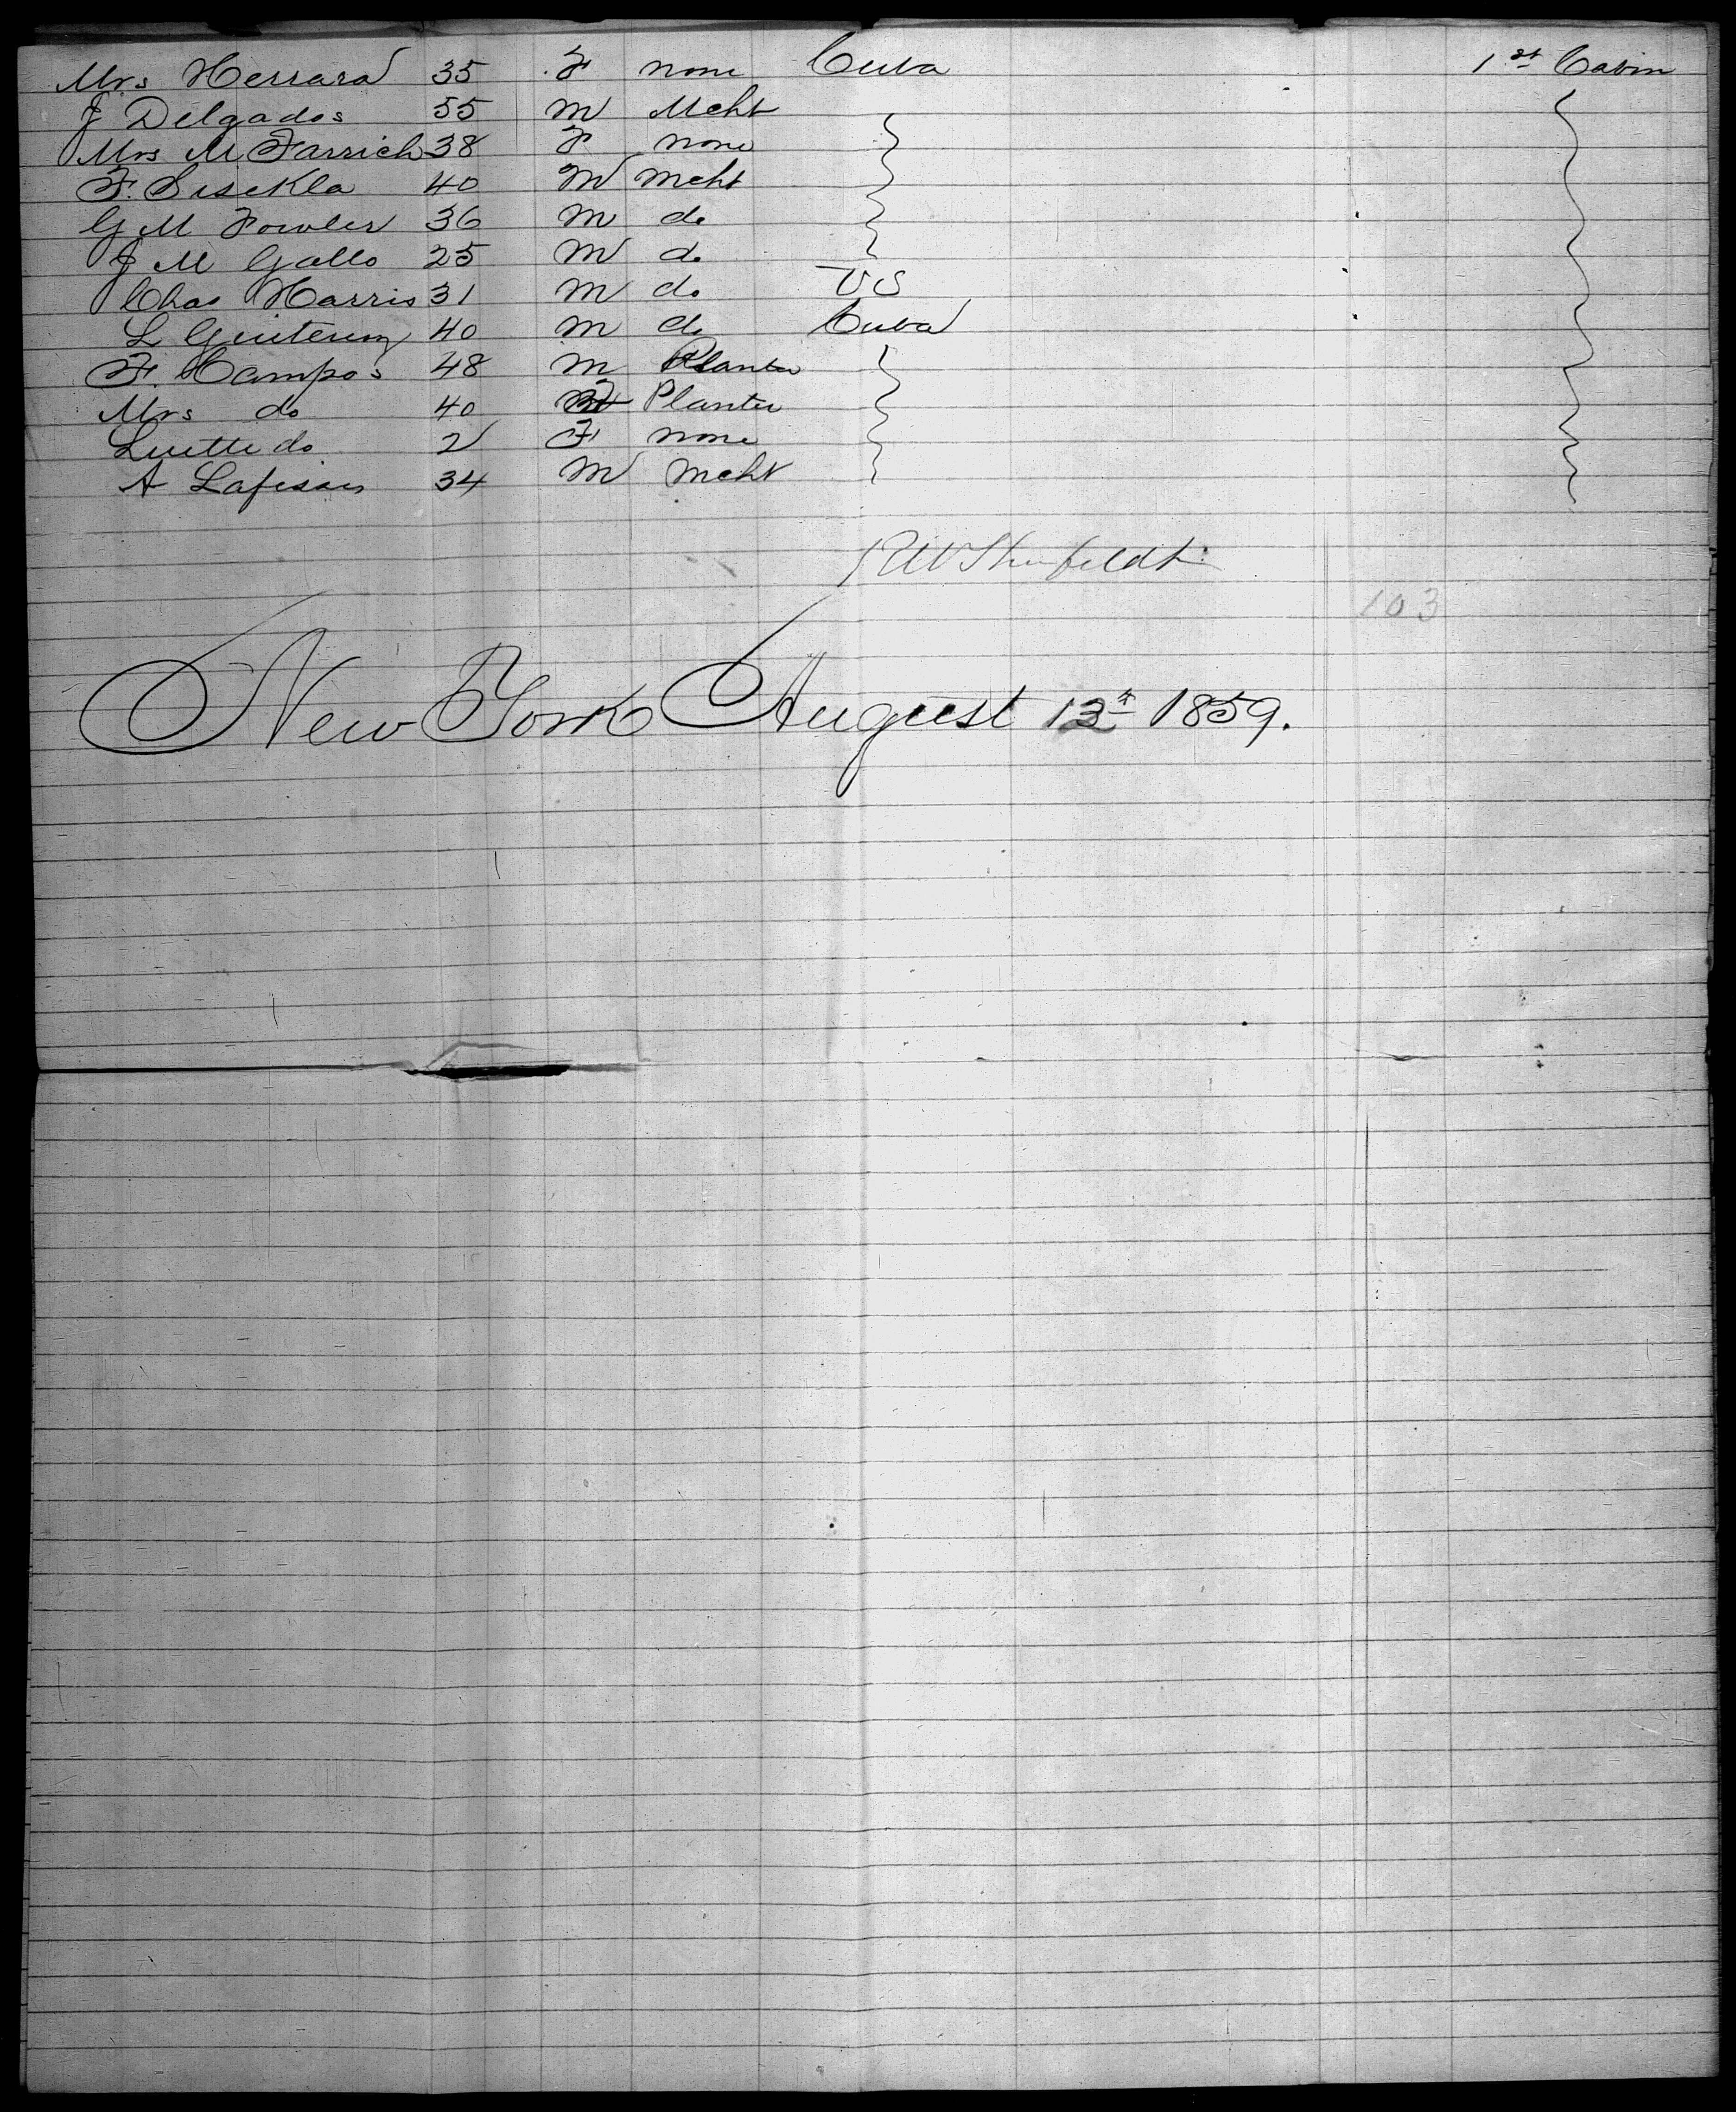 Mrs Herrara 35 F none Cuba 1st Cabin
J Delgados 55 M Mcht
Mrs M Farrich 38 F none
F. 40 M Mcht
G M Fowler 36 M do
J M Gallo 25 M do
Chas Harris 31 M do US
L 40 M do Cuba
F. Campos 48 M Planter
Mrs do 40 F Planter
do 2 F none
A 34 M Mcht
R W Shufeldt
103
New York August 12th 1859.